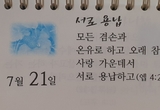 서로 용납
모든 겸손과
온유로 하고 오래 참
사랑 가운데서
서로 용납하고(엡 4:2
7월 21일